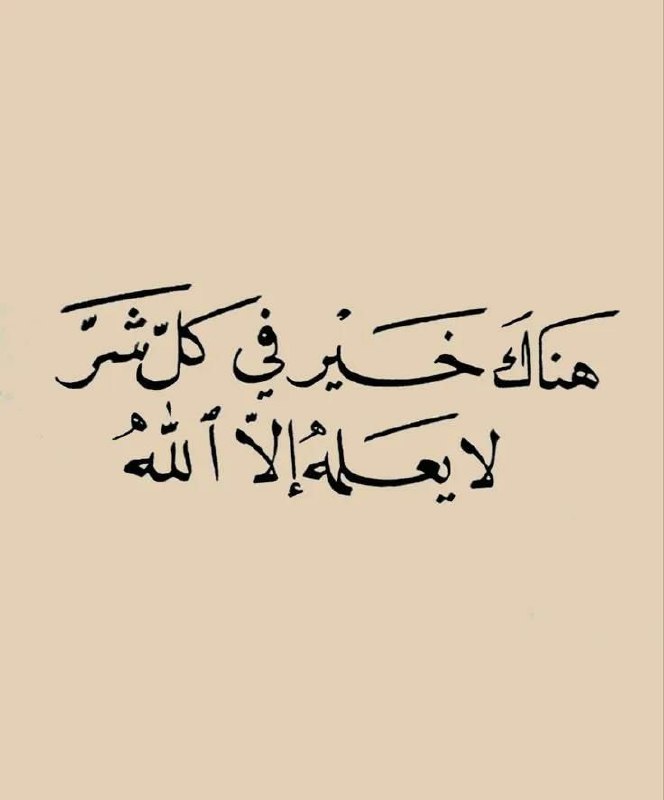 هناكَ خَيْر في كلّ شرَّ
لا يعلمهُ إلاّ ٱللهُ